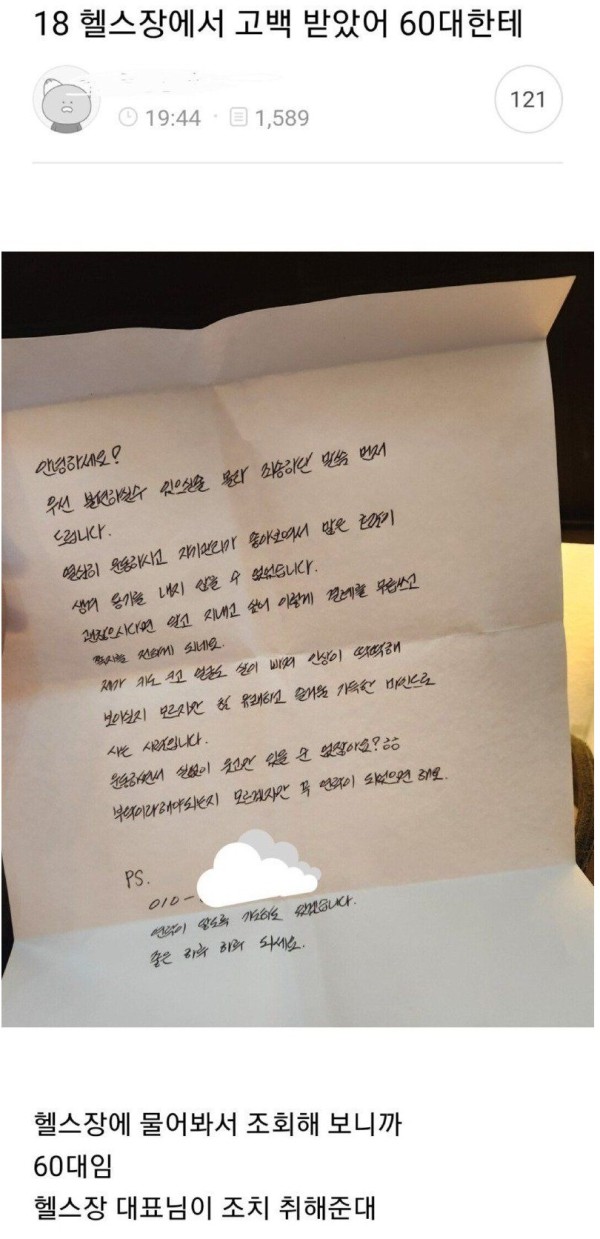 18 헬스장에서 고백 받았어 60대한테
19:44 · 1,589
121
안녕하세요?
우선 불편하실수 있으실줄 몰라 죄송하단 말씀 먼저
드립니다.
열심히 운동하시고 자기관리가 좋아보여서 많은 고민이
생겨 용기를 내지 않을 수 없었습니다.
괜찮으시다면 알고 지내고 싶어 이렇게 결례를 무릅쓰고
쪽지를 전하게 되네요.
제가 키도 크고 얼굴도 살이 빠져 인상이 딱딱해
보이실지 모르지만 참 유쾌하고 즐거움 가득한 마인드로
사는 사람입니다.
운동하면서 실없이 웃고만 있을 순 없잖아요?
부탁이라해야되는지 모르겠지만 꼭 연락이 되었으면 해요.
PS.
010-
연락이 않도록 기다리도 되겠습니다.
좋은 하루 하루 되세요.
헬스장에 물어봐서 조회해 보니까
60대임
헬스장 대표님이 조치 취해준대